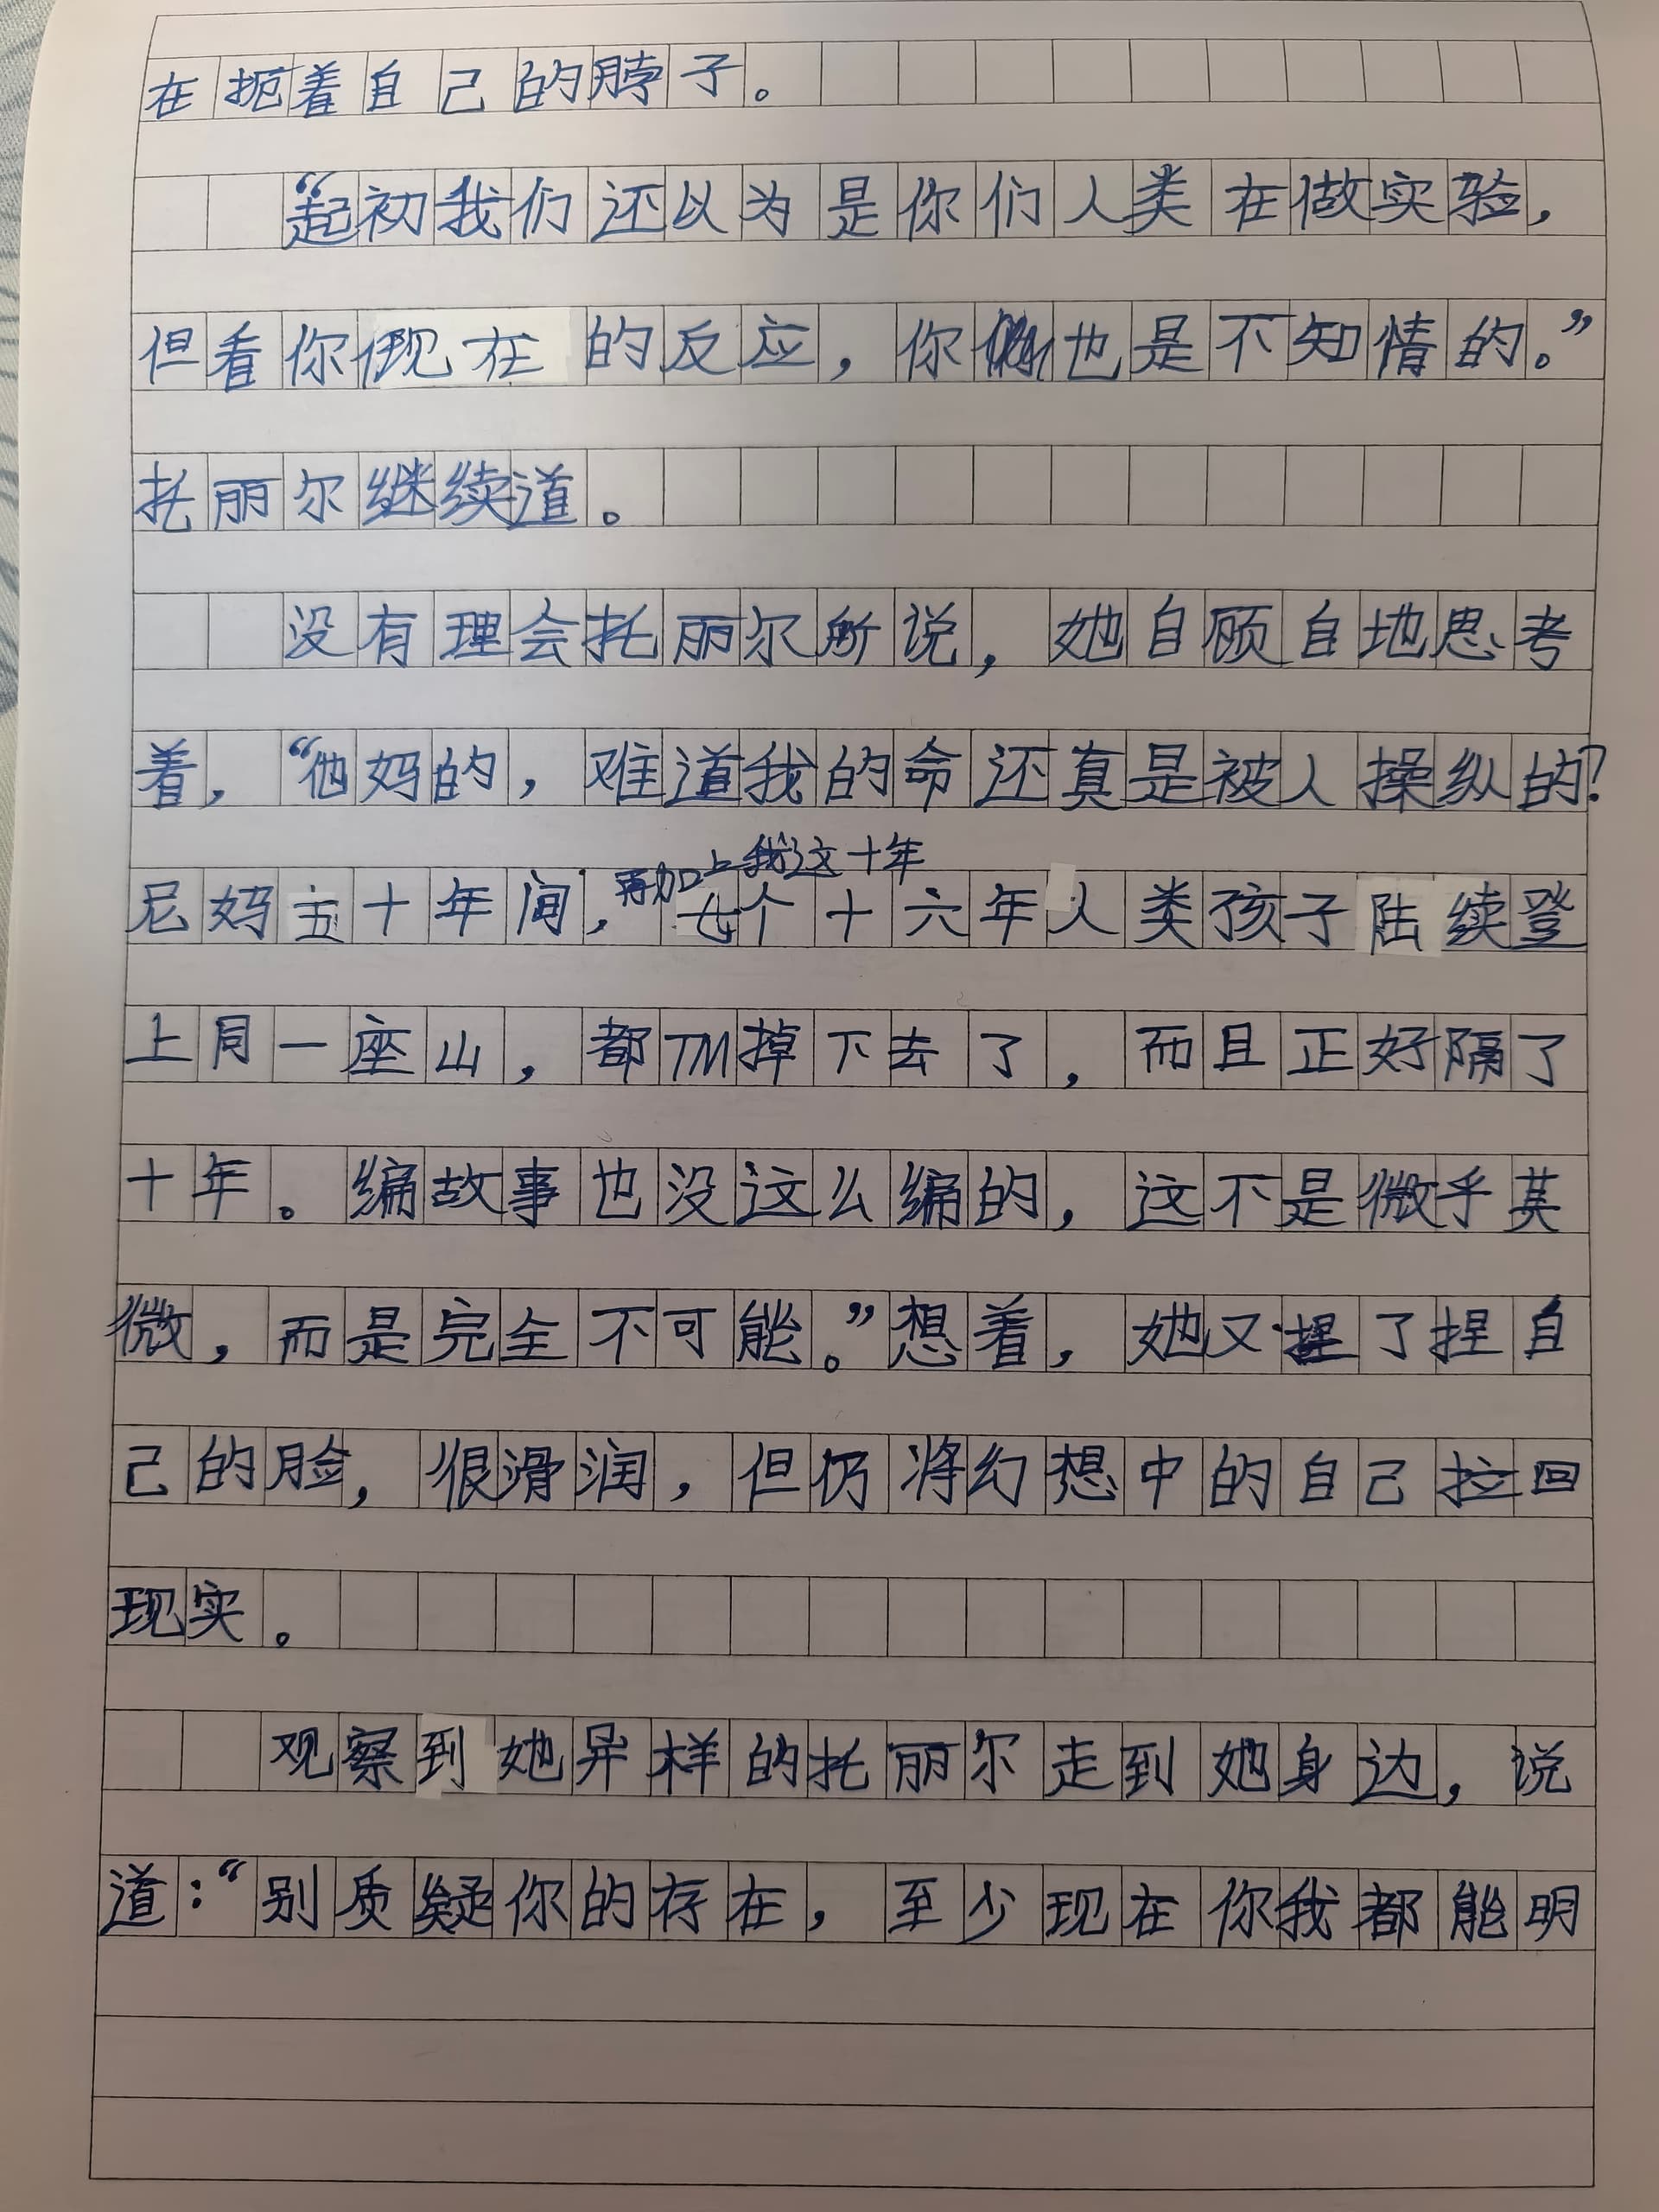 在扼着自己的脖子。
“起初我们还以为是你们人类在做实验，
但看你现在的反应，你也是不知情的。”
托丽尔继续道。
没有理会托丽尔所说，她自顾自地思考
着，“他妈的，难道我的命还真是被人操纵的？
再加上我这十年
尼妈五十年间，七个十六年人类孩子陆续登
上同一座山，都TM掉下去了，而且正好隔了
十年。编故事也没这么编的，这不是微乎其
微，而是完全不可能。”想着，她又捏了捏自
己的脸，很滑润，但仍将幻想中的自己拉回
现实。
观察到她异样的托丽尔走到她身边，说
道：“别质疑你的存在，至少现在你我都能明